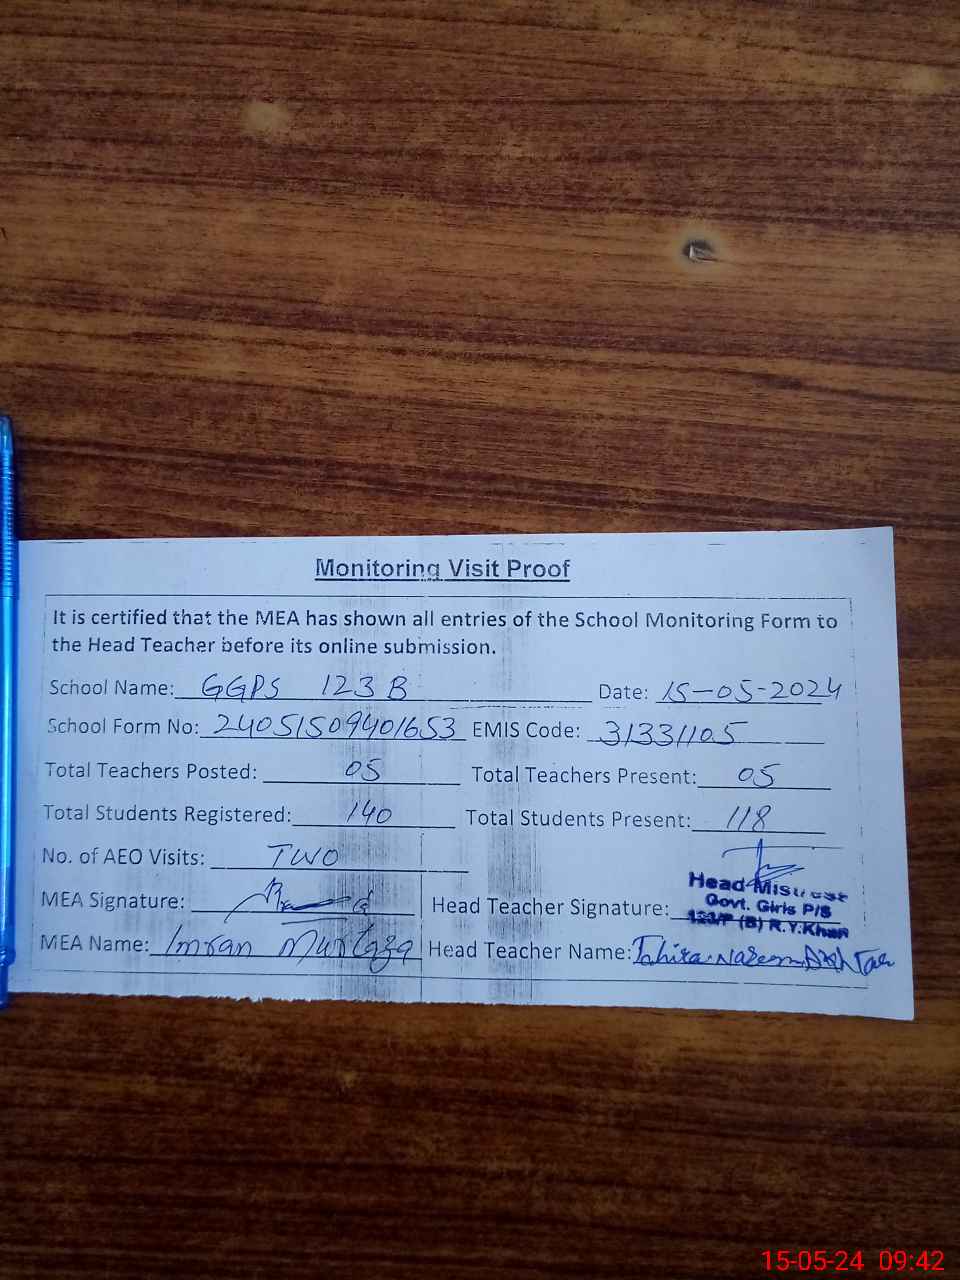 Monitoring Visit Proof
It is certified that the MEA has shown all entries of the School Monitoring Form to
the Head Teacher before its online submission.
School Name: GGPS 123 B Date: 15-05-2024
School Form No: 24051509401653 EMIS Code: 31331105
Total Teachers Posted: 05 Total Teachers Present: 05
Total Students Registered: 140 Total Students Present: 118
No. of AEO Visits: TWO
MEA Signature: Head Teacher Signature:
Head Mistress
Govt. Girls P/S
123/P (B) R.Y.Khan
MEA Name: Imran Murtaza Head Teacher Name: Tahira Naseem
15-05-24 09:42